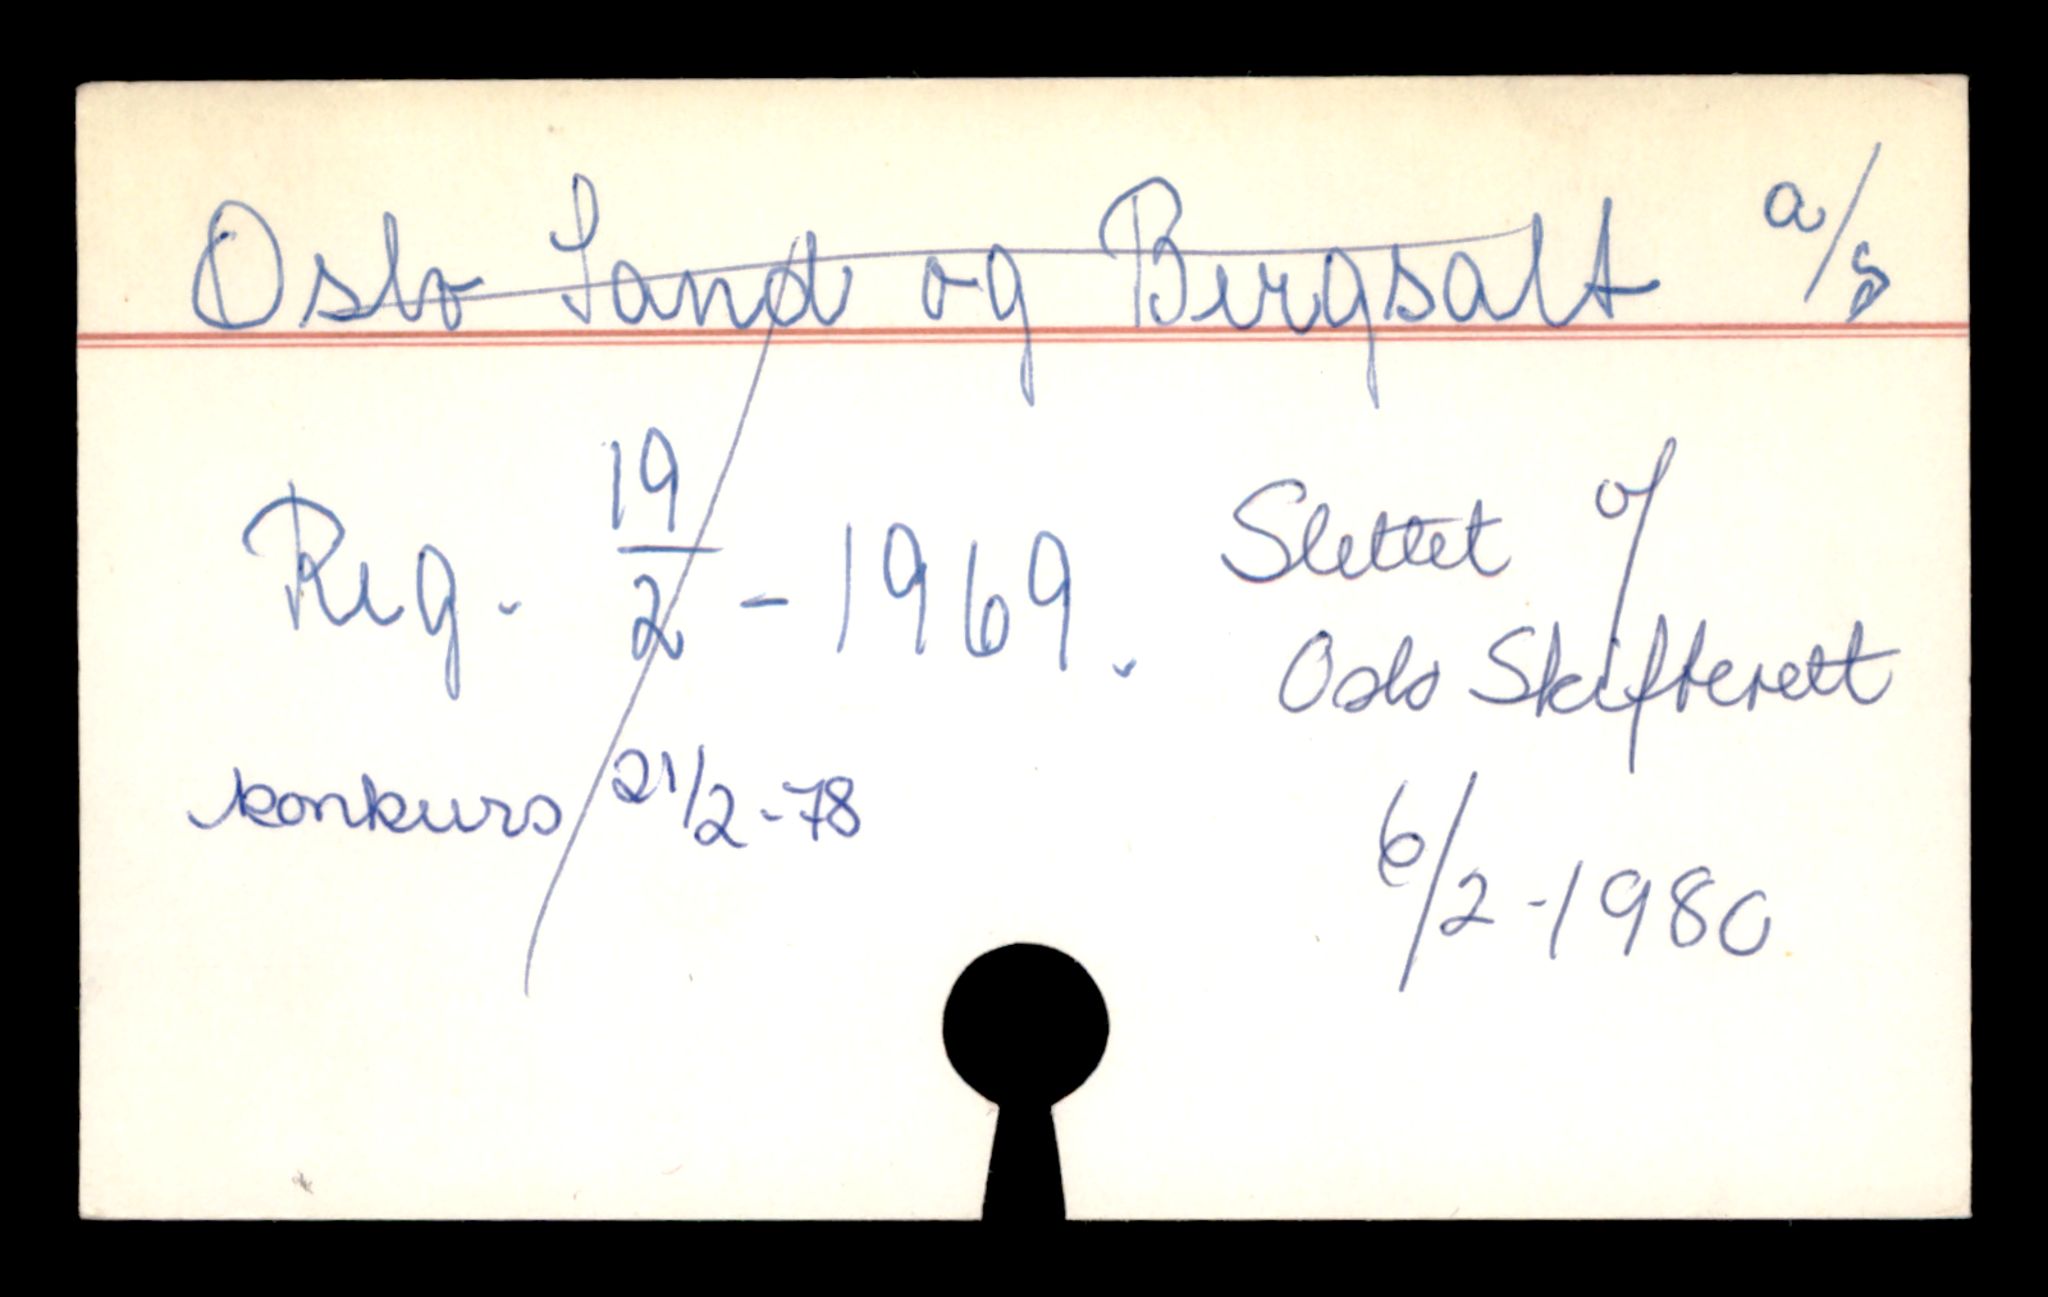 Oslo Sand og Bergsalt a/s
Reg. 19/2 - 1969.
konkurs 21/2-78
Slettet o/
Oslo Skifterett
6/2-1980